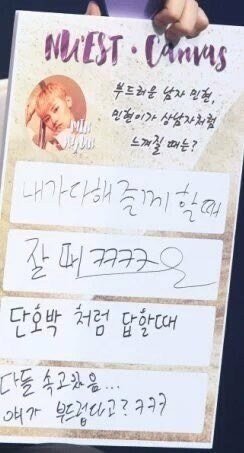 NU'EST • Canvas
부드러운 남자 민현,
민현이가 상남자처럼
느껴질 때는?
MIN
HYUN
내가다해 줄께 할때
잘 때 ㅋㅋㅋㅋ
단호박 처럼 답할때
다들 속고있음...
얘가 부드럽다고? ㅋㅋㅋ